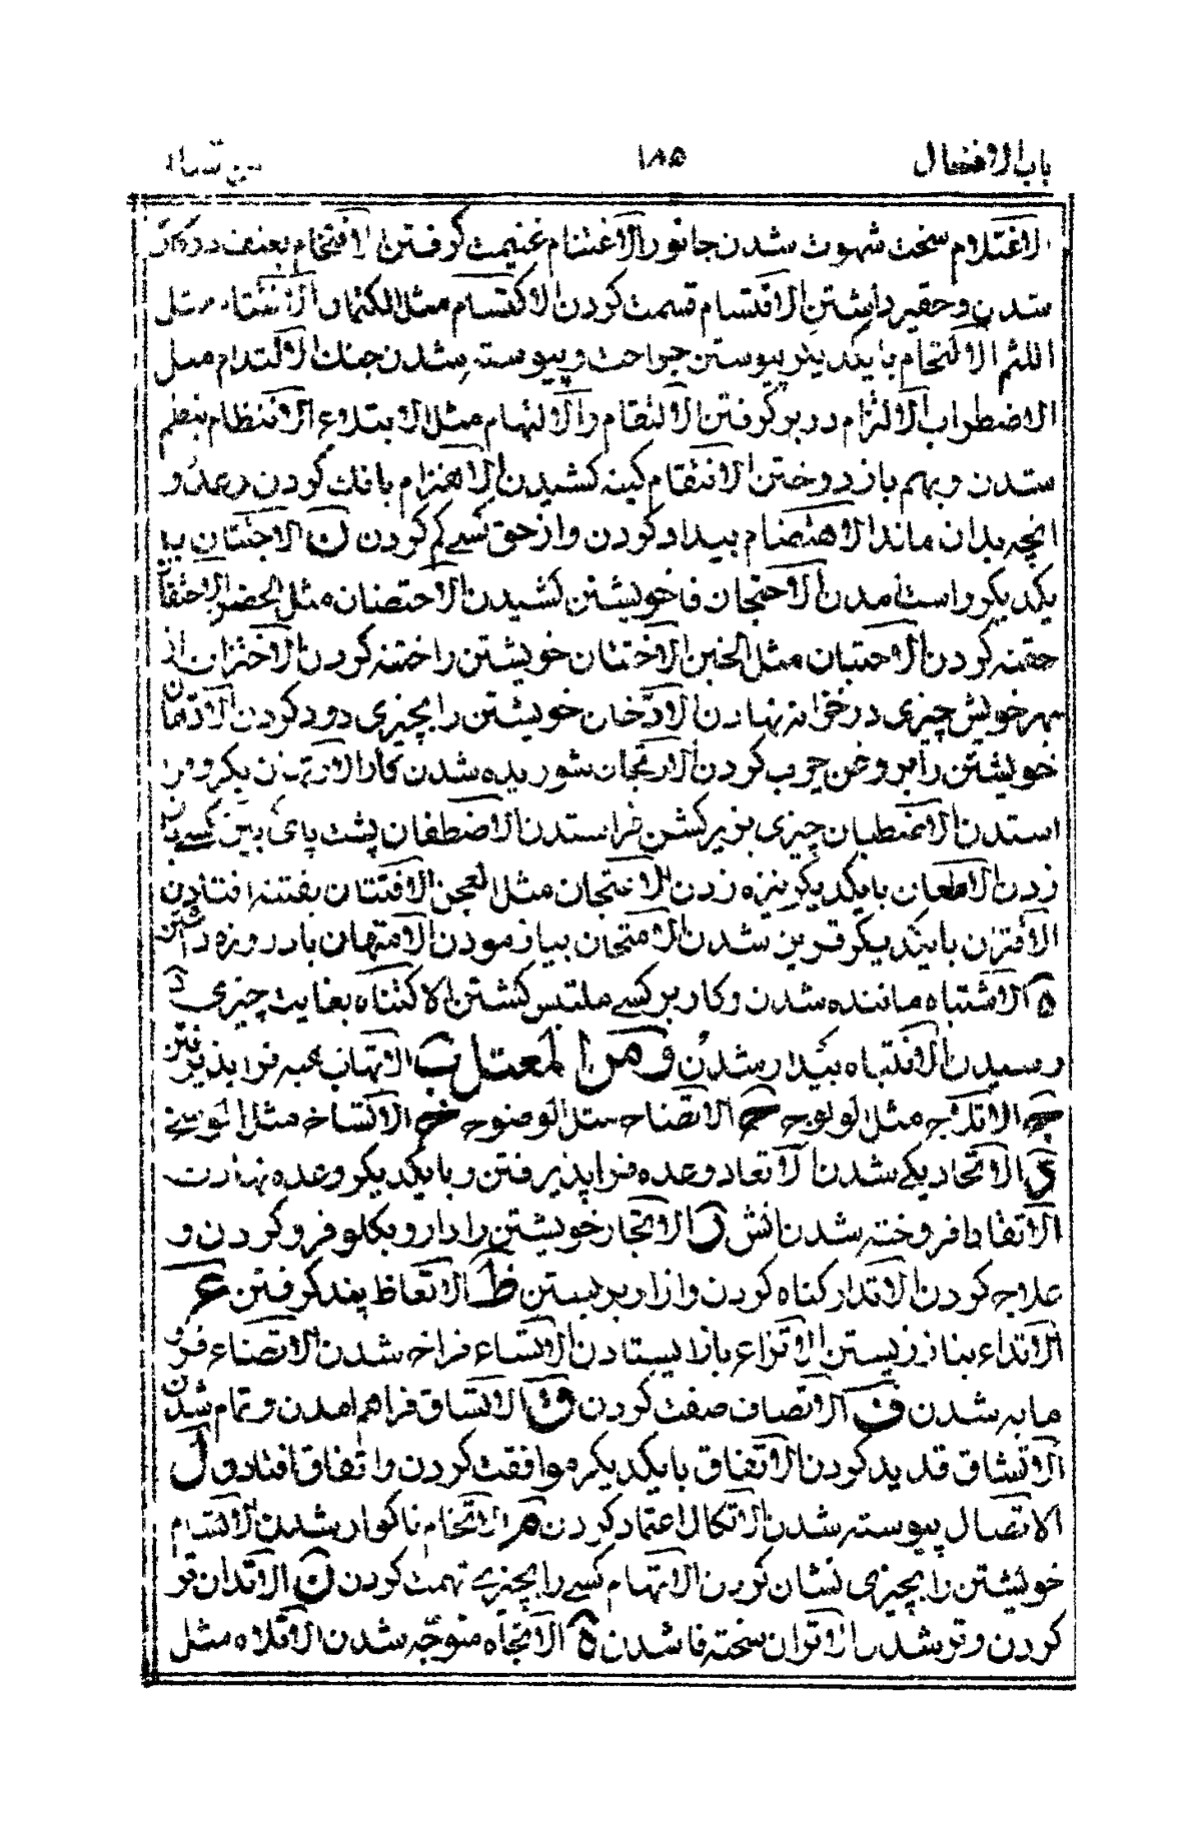 باب الافتعال ١٨٥
الاغتلام سخت شهوت شدن جانور الاغتنام غنیمت کرفتن الاقتحام بعنف در
شدن و حقیر داشتن الاقتسام قسمت کردن الاکتسام مثل الکتمان
اللثم الالتحام بایکدیکر پیوستن جراحت و پیوسته شدن جنك الالتدام مثل
الاضطراب الالتزام در بر کرفتن الالتقام و الالتهام مثل الابتلاع الانتظام بنظم
شدن و بهم باز دوختن الانتقام کینه کشیدن الاهتزام بانك کردن رعد و
انچه بدان ماند الاهتضام بیداد کردن و از حق کسے کم کردن ن الاجتنان با
یکدیکر راست امدن الاحتجان فا خویشتن کشیدن الاحتضان مثل الحضن الاحتقان
حقنه کردن الاختبان مثل الخبن الاختتان خویشتن را ختنه کردن الاختزان از
بهر خویش چیزی در خزانه نهادن الادخان خویشتن را بچیزی دود کردن الادهان
خویشتن را بروغن چرب کردن الارتجان شوریده شدن کار الارتهان بکرو
استدن الاضطبان چیزی بزیر کش فرا ستدن الاضطفان پشت پای بین کسے باز
زدن الاطعان بایکدیکر نیزه زدن الاعتجان مثل العجن الافتتان بفتنه افتادن
الاقتران بایکدیکر قرین شدن الامتحان بیازمودن الامتهان باد روزه داشتن
ه الاشتباه ماننده شدن و کار بر کسے ملتبس کشتن الاکتناه بغایت چیزی در
رسیدن الانتباه بیدار شدن ومن المعتل ب الاتهاب هبه فرا پذیرفتن
ج الاتلاج مثل لولوج ح الاتضاح مثل لوضوح خ الاتساخ مثل الوسخ
د الاتحاد یکے شدن الاتعاد وعده فرا پذیرفتن و بایکدیکر وعده نهادن
الاتقاد افروخته شدن اتش ر الاتجار خویشتن را دارو بکلو فرو کردن و
علاج کردن الاتزار کناه کردن و ازار بر بستن ظ الاتعاظ پند کرفتن ع
الاتداع بناز زیستن الاتزاع باز ایستادن الاتساع فراخ شدن الاتضاع فرو
مایه شدن ف الاتصاف صفت کردن ق الاتساق فراهم امدن و تمام شدن
الاتشاق قدید کردن الاتفاق بایکدیکر موافقت کردن و اتفاق افتادن ل
الاتصال پیوسته شدن الاتکال اعتماد کردن م الاتخام ناکوار شدن الاتسام
خویشتن را بچیزی نشان کردن الاتهام کسے را بچیزے تهمت کردن ن الاتدان تر
کردن و تر شدن الاتزان سخته فا شدن ه الاتجاه متوجه شدن الاتلاه مثل